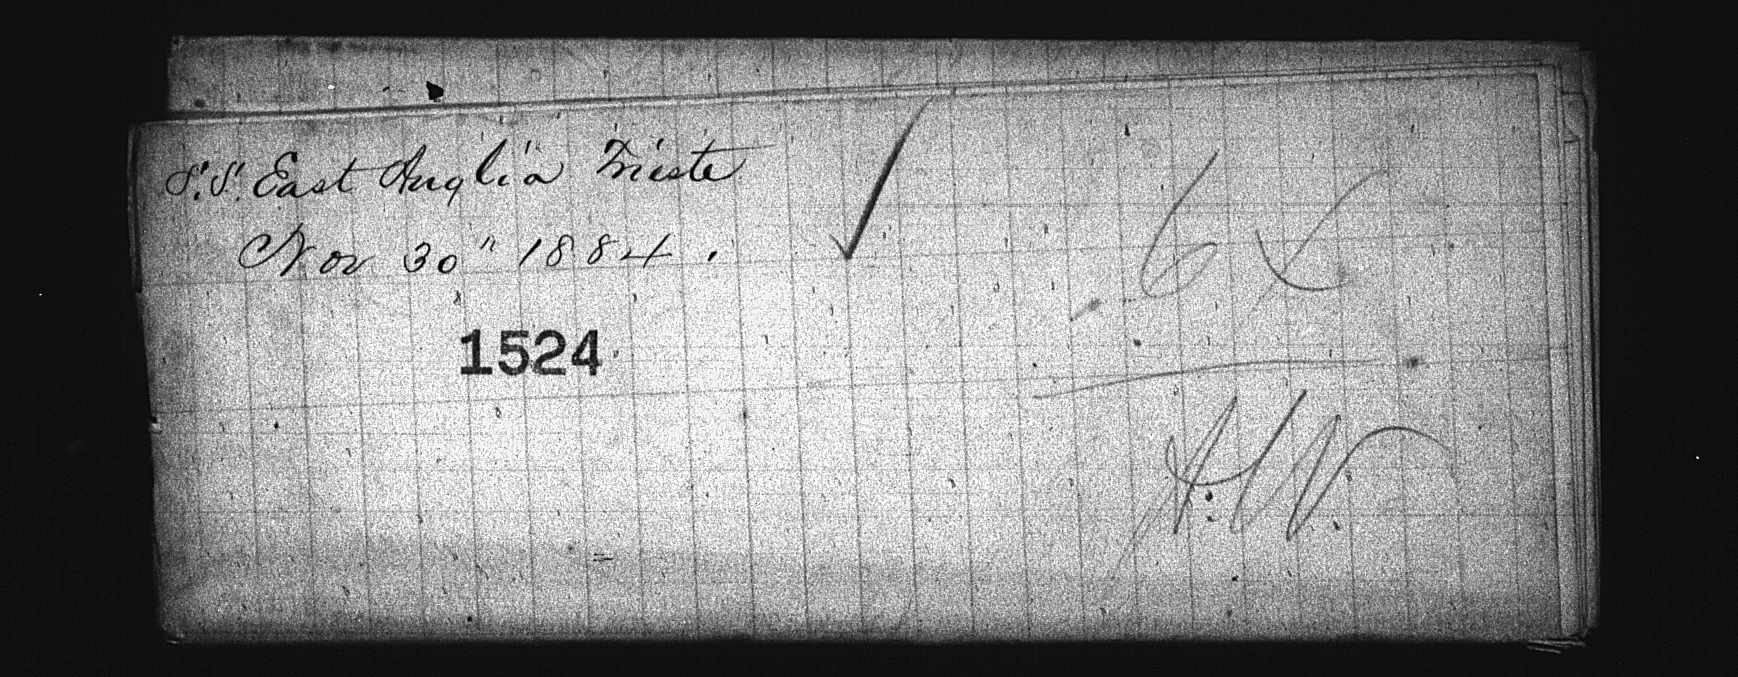 S.S. East Anglia Trieste
Nov 30" 1884.
1524
6 X
A.W.